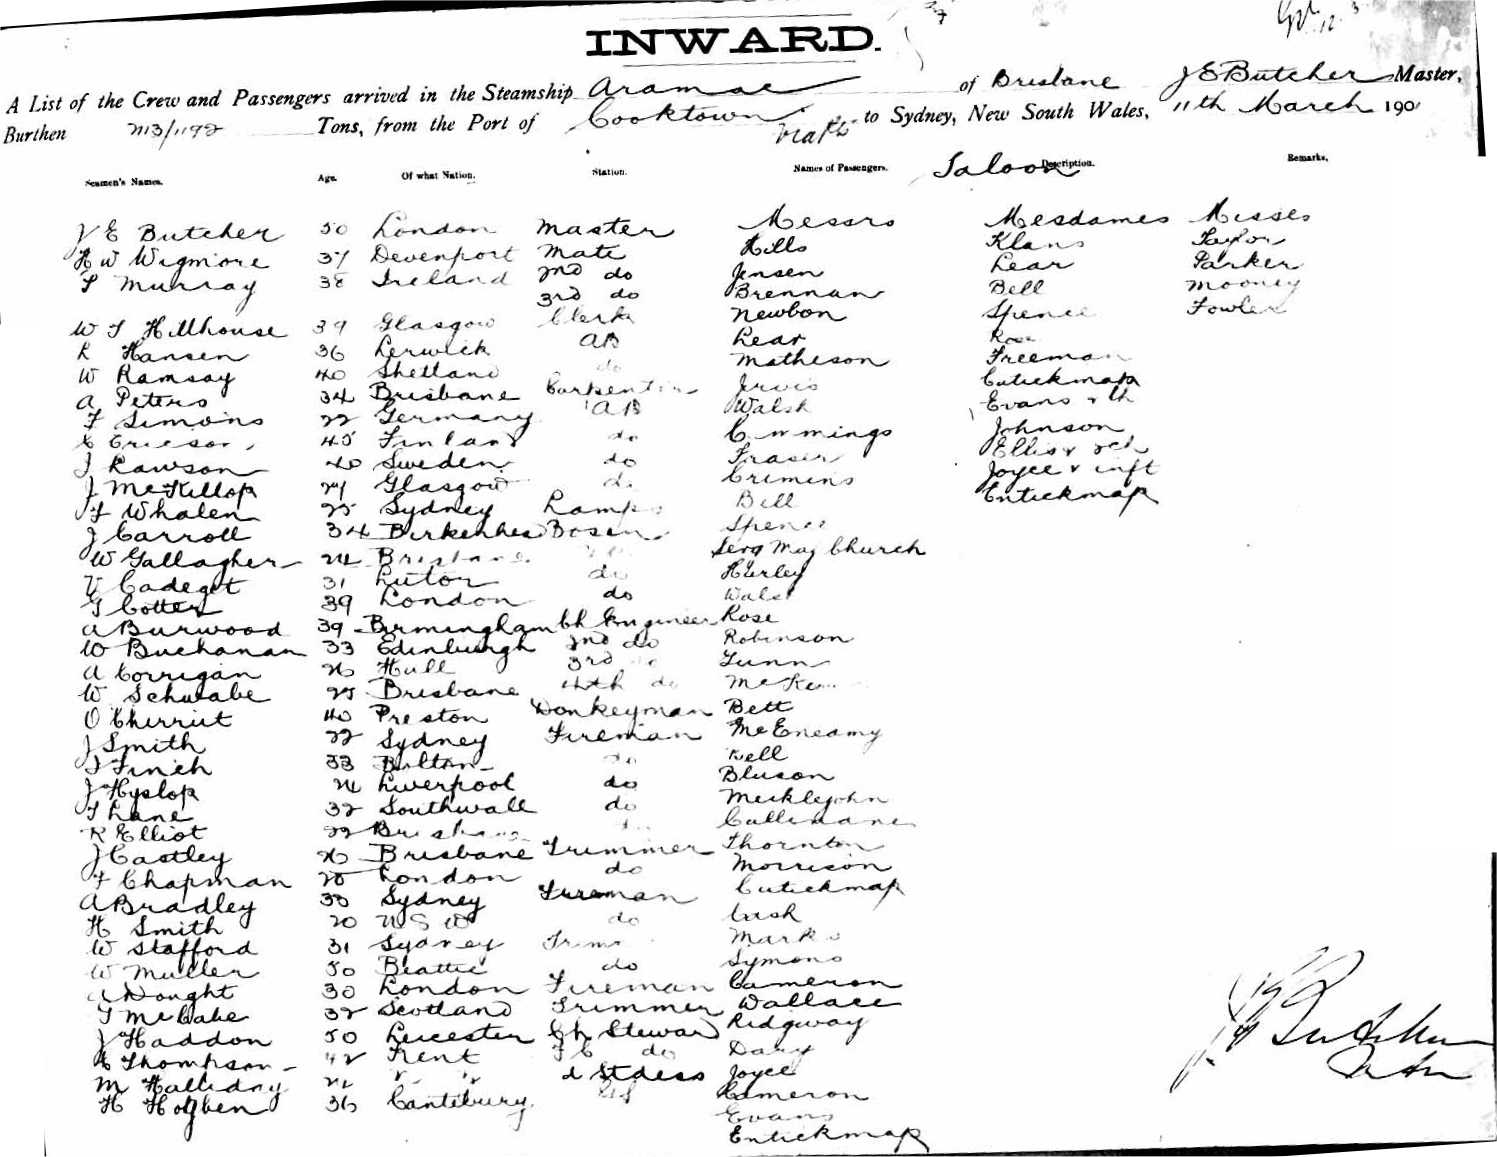 INWARD.
A List of the Crew and Passengers arrived in the Steamship Aramac of Brisbane J E Butcher Master,
Burthen 2113/1192 Tons, from the Port of Cooktown to Sydney, New South Wales, 11th March 190
Seamen's Names. Age. Of what Nation. Station. Names of Passengers. Saloon Description. Remarks.
J E Butcher 50 London Master Messrs Mesdames Misses
H W Wigmore 37 Devenport Mate Hills Klans Taylor
T Murray 38 Ireland 2nd do Jensen Lear Parker
3rd do Brennan Bell Mooney
W T Hillhouse 39 Glasgow Clerk Newbon Spence Fowler
R Hansen 36 Lerwick AB Lear Rose
W Ramsay 40 Shetland do Matheson Freeman
A Peters 34 Brisbane Carpenter Jervis Entickmap
F Simons 22 Germany AB Walsh Evans
C Ericson 45 Finland do Cummings Johnson
J Rawson 40 Sweden do Fraser Ellis
J McKillop 27 Glasgow do Crimins Joyce & inft
F Whalen 25 Sydney Lamps Bell Entickmap
J Carroll 34 Birkenhead Bosen Spence
W Gallagher 24 Brisbane Serg Maj Church
Cadeget 31 Luton do Hurley
G Cotter 39 London do Walsh
A Burwood 39 Birmingham Ch Engineer Rose
W Buchanan 33 Edinburgh 2nd do Robinson
A Corrigan 26 Hull 3rd do Gunn
W Schwabe 25 Brisbane 4th do
O Cherrut 40 Preston Donkeyman Bett
J Smith 22 Sydney Fireman McEneamy
T Finch 33 Bolton do Kell
J Hyslop 24 Liverpool do Bluson
T Lane 32 Southwall do Meiklejohn
R Elliot 22 Brisbane do Callinane
J Castley 26 Brisbane Trimmer Thornton
F Chapman 28 London do Morrison
A Bradley 30 Sydney Fireman Entickmap
H Smith 20 N S W do Cash
W Stafford 31 Sydney Trim Marks
W Muller 50 Beattie do Symons
A Dought 30 London Fireman Cameron
T McCabe 32 Scotland Trimmer Wallace
J Haddon 50 Leicester Ch Steward Ridgway
E Thompson 42 Kent do Dary
M Halliday " " Stdess Joyce
H Hogben 36 Cantebury Cameron
Evans
Entickmap
J E Butcher